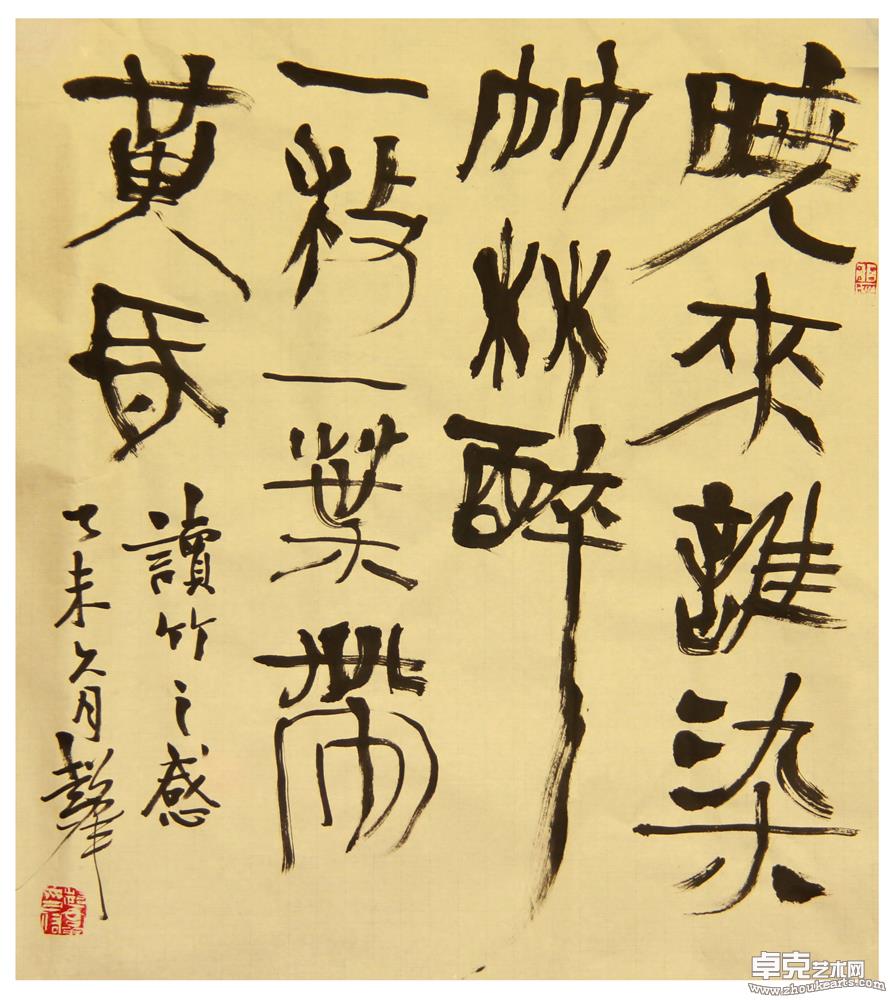 曉來誰染
竹林醉
一枝一葉帶
黄昏
讀竹之感
乙未 月
卓克艺术网
www.zhoukearts.com